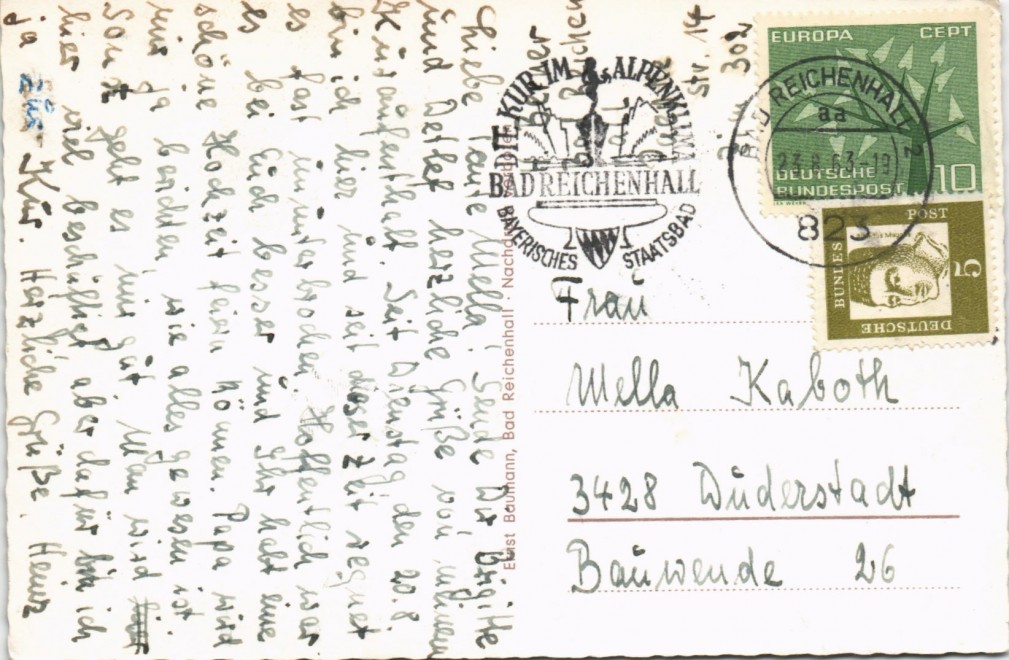 Liebe Tante Mella! Sende Dir Brigitte
und Detlef herzliche Grüße von meinem
Kuraufenthalt. Seit Dienstag den 20.8.
bin ich hier und seit dieser Zeit regnet
es fast ununterbrochen. Hoffentlich war
es bei Euch besser und Ihr habt eine
schöne Hochzeit feiern können. Papa wird
mir ja berichten wie alles gewesen ist.
Sonst geht es mir gut. Man wird
hier viel beschäftigt aber dafür bin ich
ja zur Kur. Herzliche Grüße. Heinz
Str. 14
302
DIE KUR IM ALPENKLIMA
BAD REICHENHALL
BAYERISCHES STAATSBAD
EUROPA CEPT
DEUTSCHE
BUNDESPOST 10
BAD REICHENHALL 2
aa
23.8.63-19
823
DEUTSCHE
BUNDES
POST
5
Ernst Baumann, Bad Reichenhall · Nachdr
Frau
Mella Kaboth
3428 Duderstadt
Bauwende 26